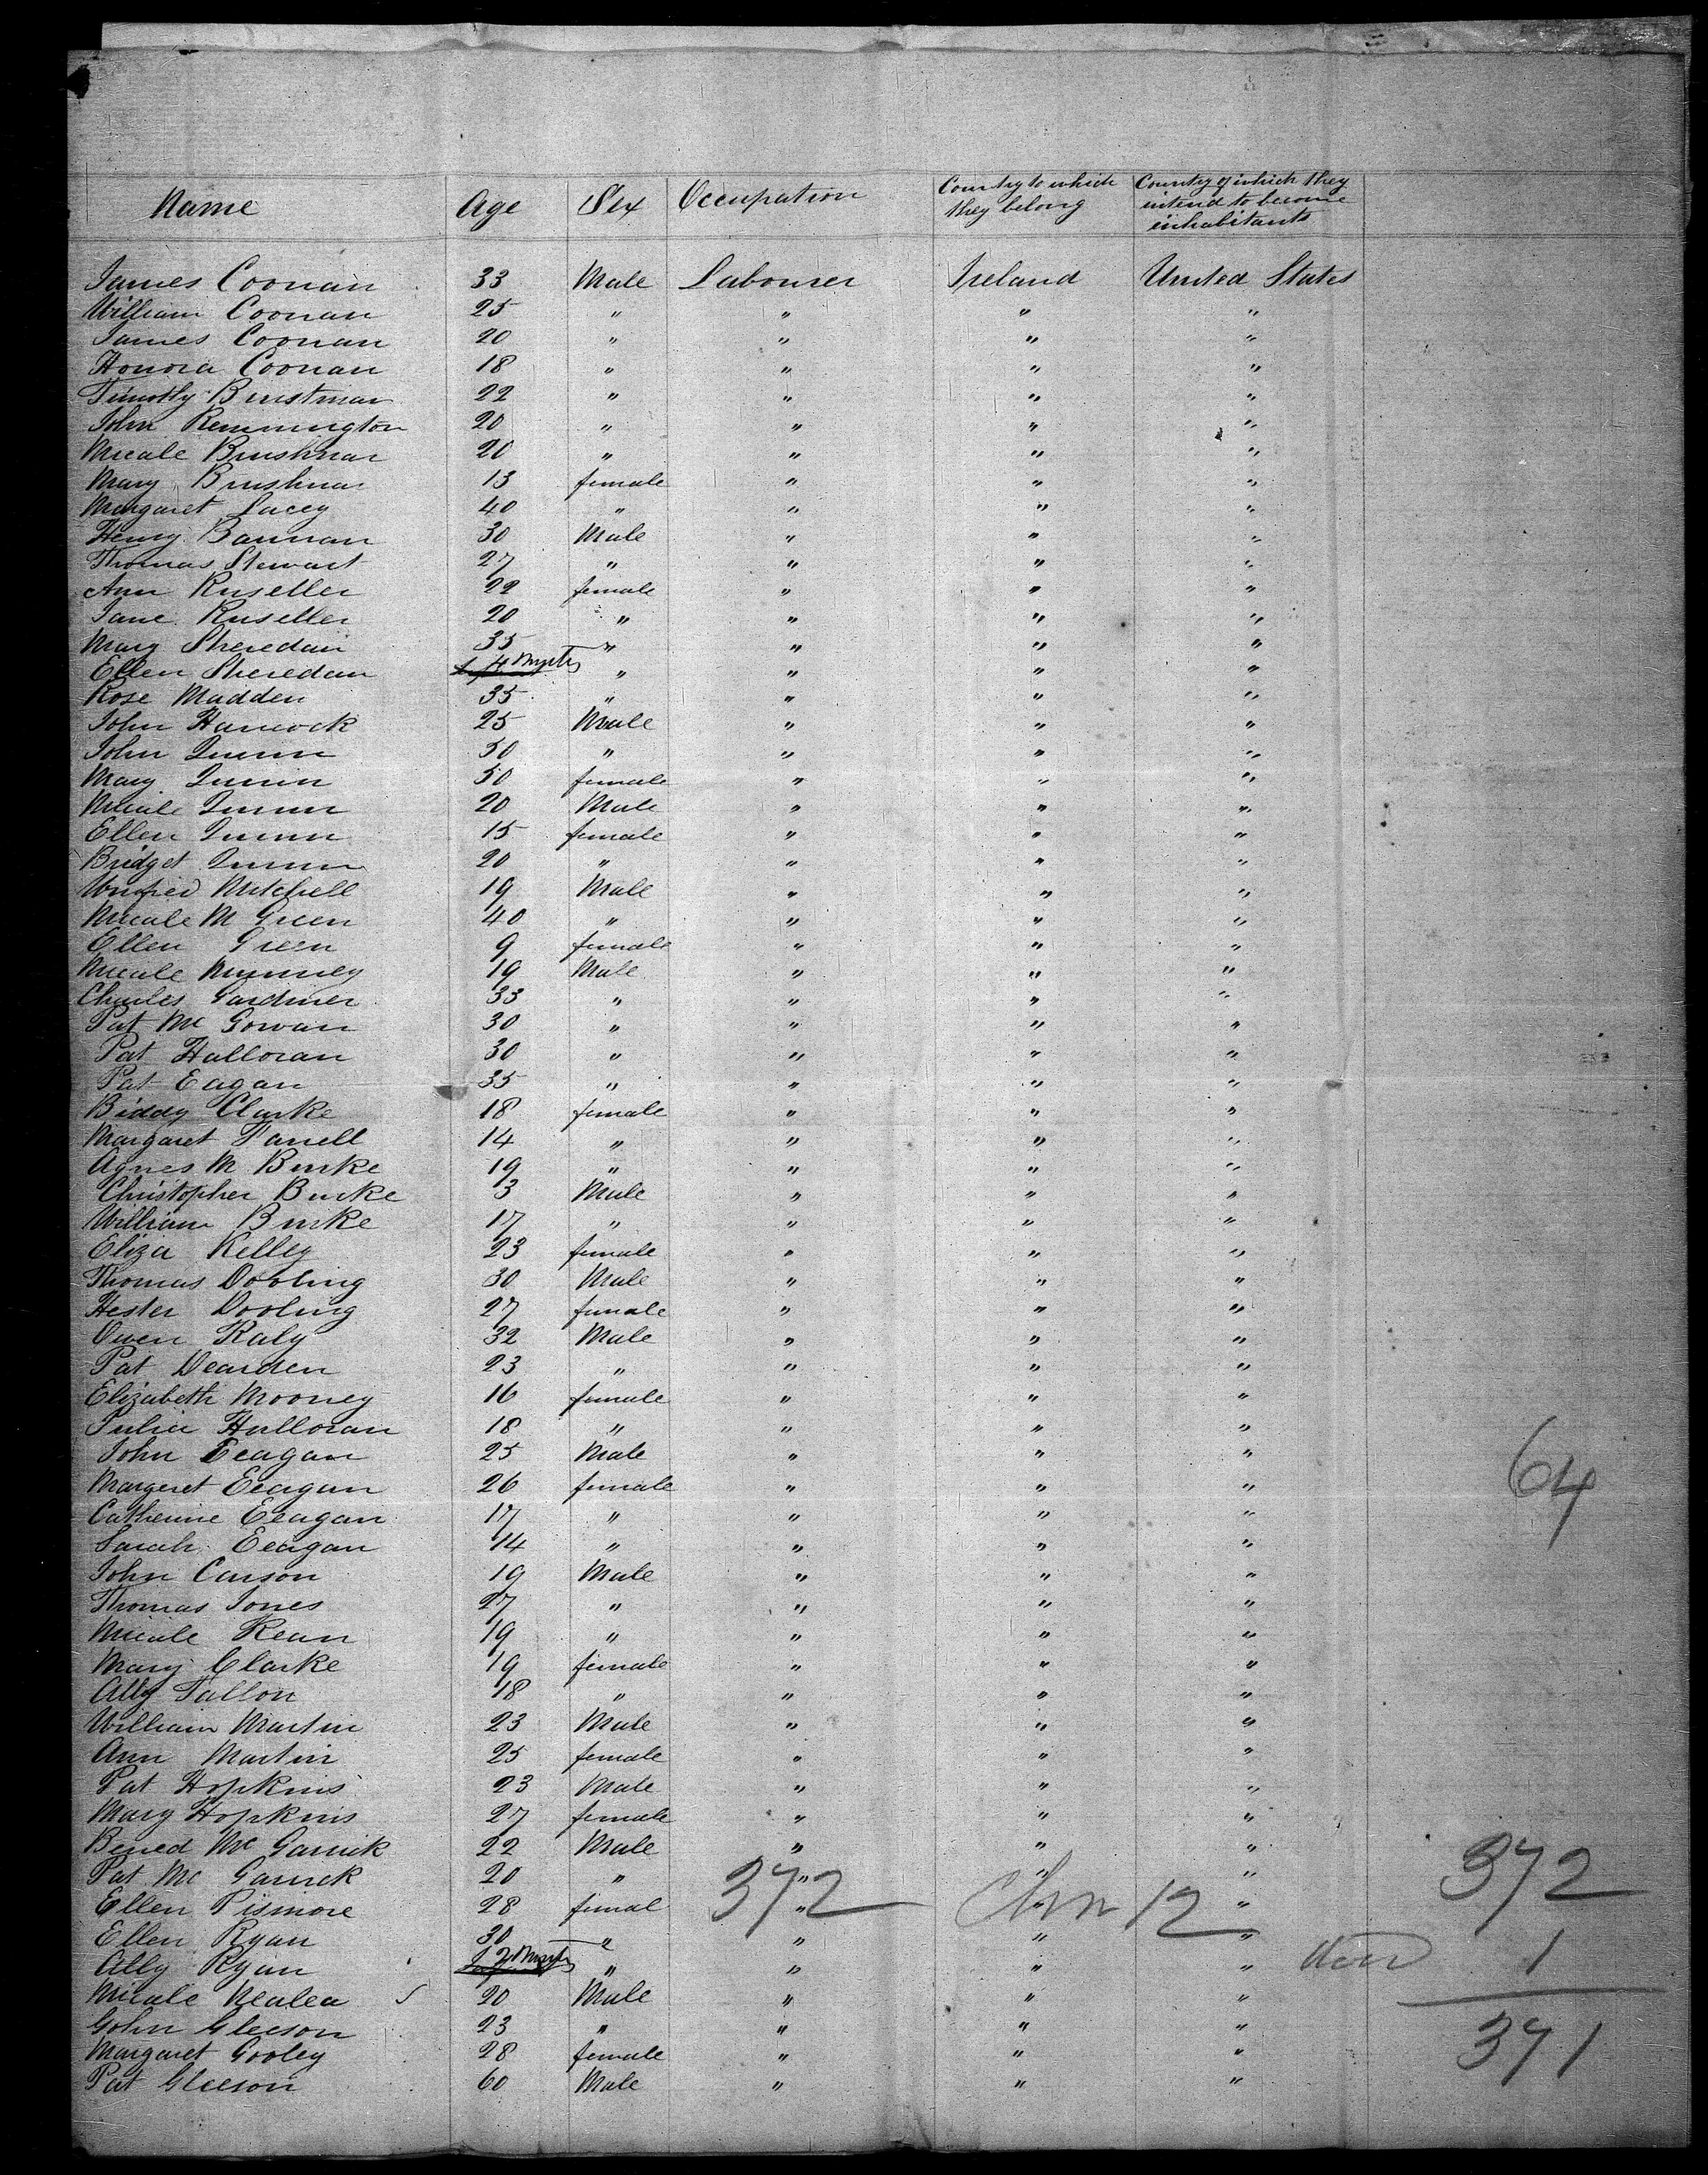 Name Age Sex Occupation Country to which they belong Country of which they intend to become inhabitants
James Coonan 33 Male Labourer Ireland United States
William Coonan 25 " " " "
James Coonan 20 " " " "
Honora Coonan 18 " " " "
Timothy 22 " " " "
John Remmington 20 " " " "
Micale Brushnar 20 " " " "
Mary Brushnar 13 female " " "
Margaret Lacey 40 " " " "
Henry Bannan 30 Male " " "
Thomas Stewart 27 " " " "
Ann Ruseller 22 female " " "
Jane Ruseller 20 " " " "
Mary Sheredan 35 " " " "
Ellen Sheredan 4 Mnths " " " "
Rose Madden 35 " " " "
John Hancock 25 Male " " "
John Quinn 50 " " " "
Mary Quinn 50 female " " "
Micale Quinn 20 Male " " "
Ellen Quinn 15 female " " "
Bridget Quinn 20 " " " "
Mitchell 19 Male " " "
Micale M Green 40 " " " "
Ellen Green 9 female " " "
Micale 19 Male " " "
Charles Gardiner 33 " " " "
Pat Mc Gowan 30 " " " "
Pat Halloran 30 " " " "
Pat Eagan 35 " " " "
Biddy Clarke 18 female " " "
Margaret Farrell 14 " " " "
Agnes M Burke 19 " " " "
Christopher Burke 3 Male " " "
William Burke 17 " " " "
Eliza Kelley 23 female " " "
Thomas Dooling 30 Male " " "
Hester Dooling 27 female " " "
Owen Raly 32 Male " " "
Pat Dearden 23 " " " "
Elizabeth Mooney 16 female " " "
Julia Halloran 18 " " " "
John Eeagan 25 Male " " "
Margeret Eeagan 26 female " " " 64
Catherine Eeagan 17 " " " "
Sarah Eeagan 14 " " " "
John Carson 19 Male " " "
Thomas Jones 27 " " " "
Micale Kean 19 " " " "
Mary Clarke 19 female " " "
Ally Fallon 18 " " " "
William Martin 23 Male " " "
Ann Martin 25 female " " "
Pat Hopkins 23 Male " " "
Mary Hopkins 27 female " " "
Bened Mc Garrick 22 Male " " "
Pat Mc Garrick 20 " " " " 372
Ellen Pismore 28 femal " " " 372 12
Ellen Ryan 30 " " " "
Ally Ryan 2 Mnths " " " " 1
Micale Nealea 20 Male " " "
Gohn Gleeson 23 " " " "
Margaret Gooley 28 female " " " 371
Pat Gleeson 60 Male " " "